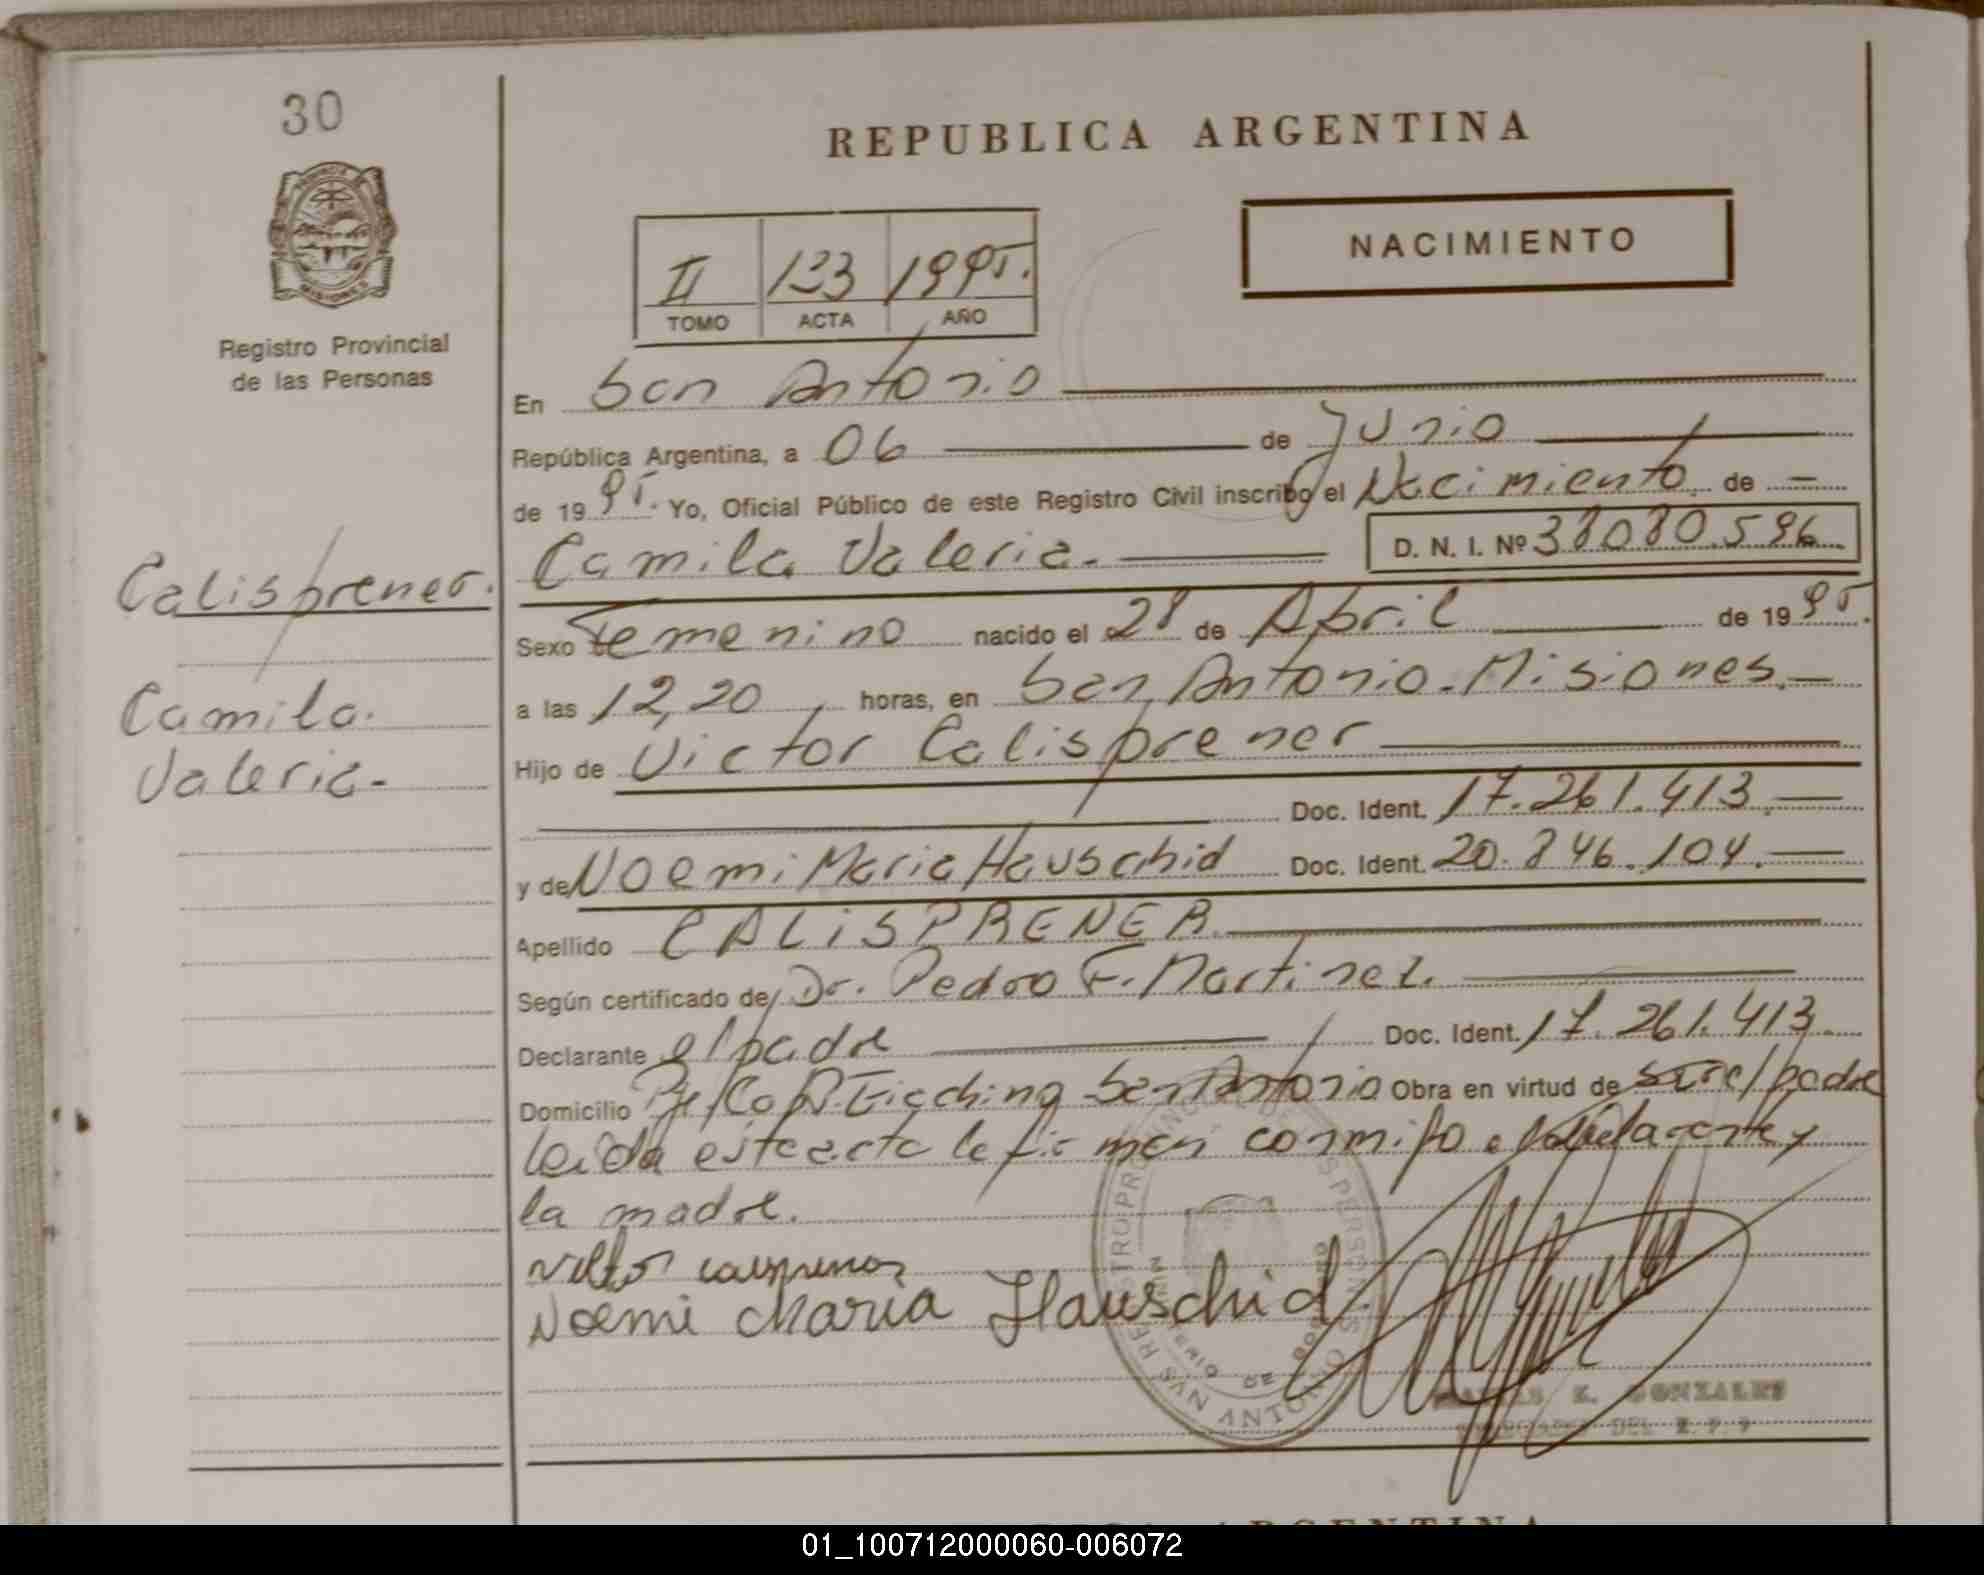 30
REPUBLICA ARGENTINA
NACIMIENTO
II 123 1995.
TOMO ACTA AÑO
Registro Provincial
de las Personas
En San Antonio
República Argentina, a 06 de Junio
de 1995. Yo, Oficial Público de este Registro Civil inscribo el Nacimiento de
Calisprener.
Camila Valeria. D. N. I. Nº 38080.596
Sexo Femenino nacido el 28 de Abril de 1995.
Camila.
Valeria.-
a las 12,20 horas, en San Antonio. Misiones.
Hijo de Victor Calisprener
Doc. Ident. 17.261.413.
y de Noemi Maria Hauschid Doc. Ident. 20.846.104.
Apellido CALiSPRENER.
Según certificado de Dr. Pedro F. Martinez.
Declarante el padre Doc. Ident. 17.261.413.
Domicilio San Antonio Obra en virtud de ser el padre
leida este acta la firman conmigo el y
la madre.
Noemi Maria Hauschid
REGISTRO PROVINCIAL DE LAS PERSONAS
MINISTERIO DE GOBIERNO
SAN ANTONIO
E. GONZALES
DEL R. P. P
REPUBLICA ARGENTINA
01_100712000060-006072